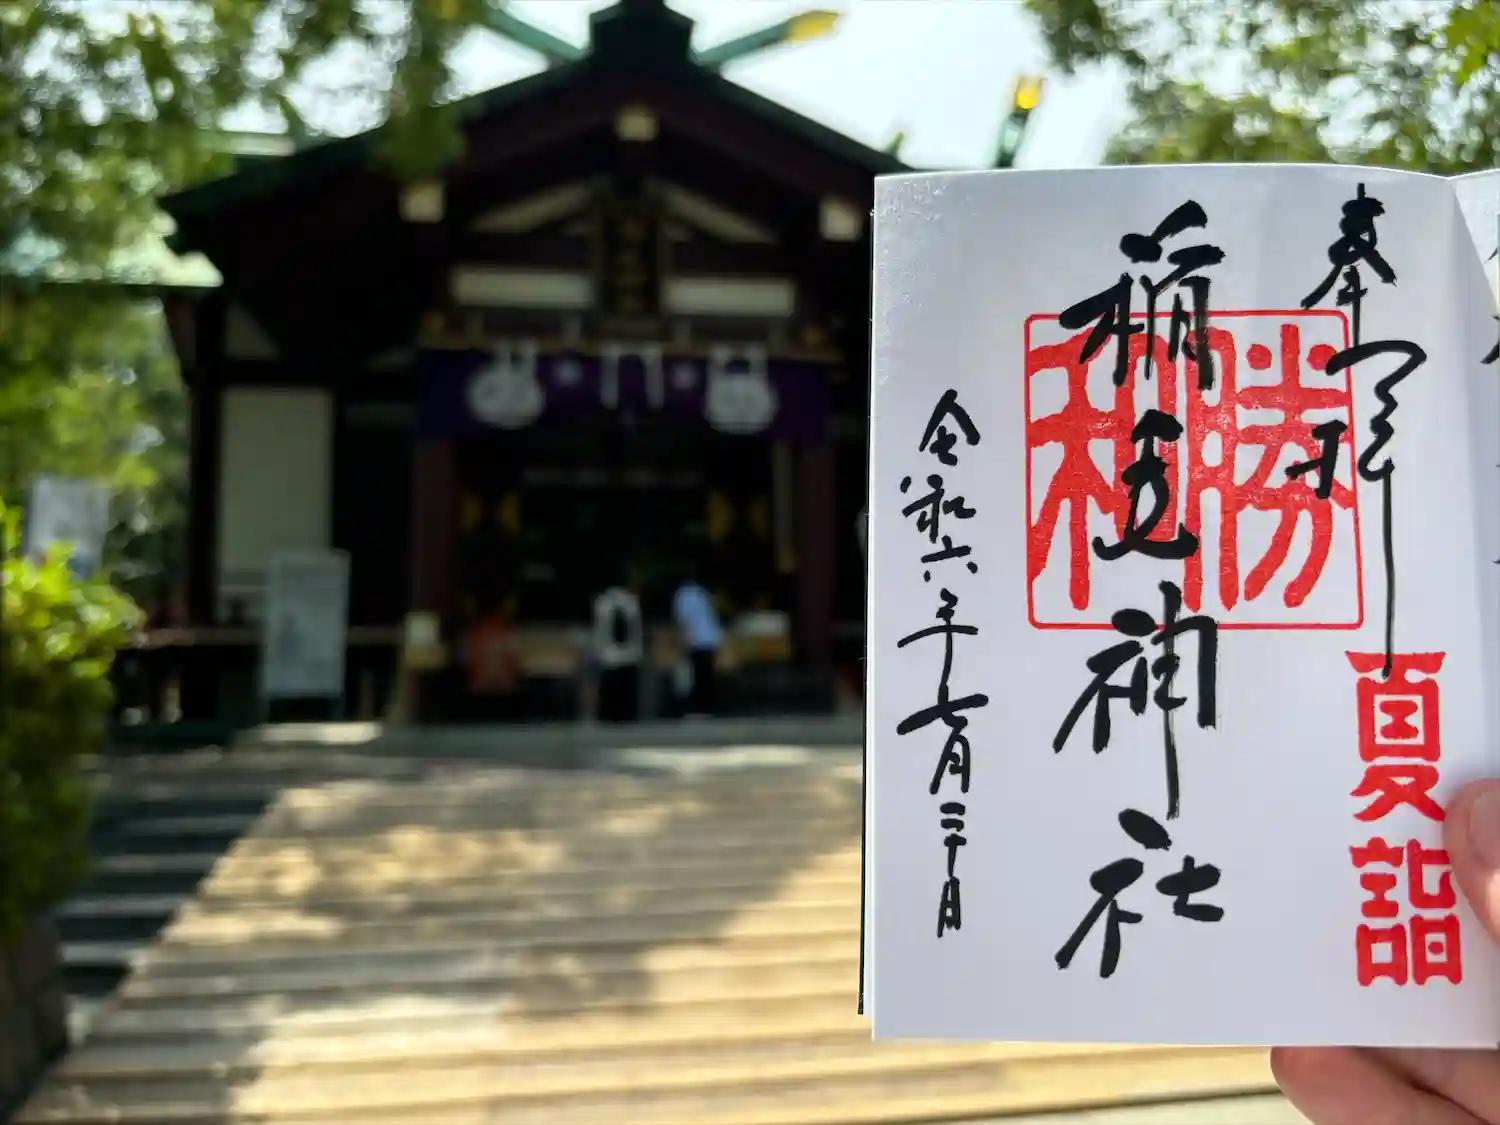 奉拝
夏詣
勝和
稲毛神社
令和六年七月二十日